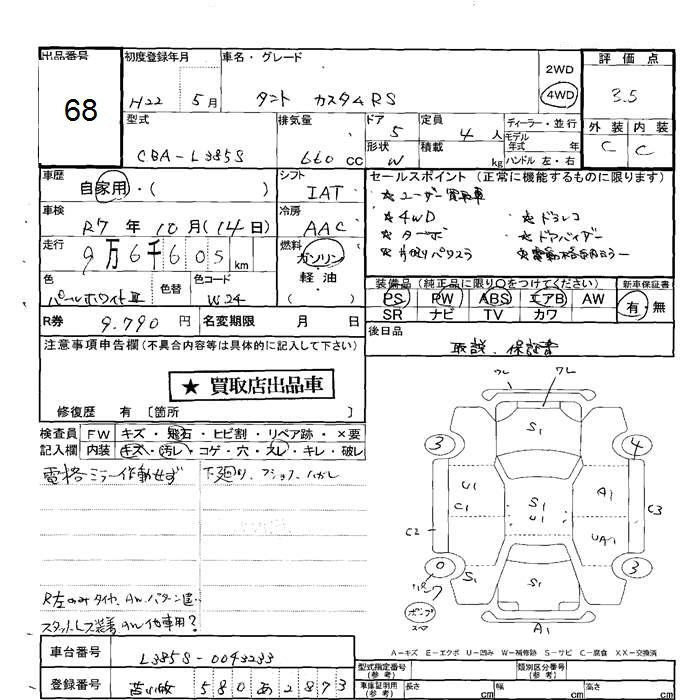 出品番号 初度登録年月 車名・グレード 2WD 評価点
68 H22 5月 タント カスタムRS 4WD 3.5
型式 排気量 ドア 5 定員 4人 ディーラー・並行 外装 内装
CBA-L385S 660cc 形状 W 積載 kg モデル年式 年 C C
ハンドル 左・右
車歴 自家用・( ) シフト IAT セールスポイント(正常に機能するものに限ります)
車検 R7年10月(14日) 冷房 AAC ★ユーザー買取車
★4WD ★ドラレコ
走行 9万6千605km 燃料 ガソリン 軽油 ( ) ★ターボ ★ドアバイザー
★片側パワスラ ★電動格納ミラー
色 パールホワイトIII 色替 色コード W24 装備品(純正品に限り○をつけてください) 新車保証書
PS PW ABS エアB AW 有・無
SR ナビ TV カワ
R券 9.790円 名変期限 月 日 後日品
注意事項申告欄(不具合内容等は具体的に記入して下さい) 取説、保証書
★買取店出品車
修復歴 有〔箇所 〕
検査員 FW キズ・飛石・ヒビ割・リペア跡・×要
記入欄 内装 キズ・汚レ・コゲ・穴・スレ・キレ・破レ
電格ミラー作動せず 下廻り、フショク、ハガレ
R左のみタイヤ、AWパターン違
スタットレス装着 AW他車用?
ワレ
S1
3 4
U1 C1 S1 U1 A1
C2 UA1 C3
0 3
S1 S1
パンク
ポンプ
A1
A-キズ E-エクボ U-凹み W-補修跡 S-サビ C-腐食 XX-交換済
車台番号 L385S-0043233 型式指定番号(参考) 類別区分番号(参考)
登録番号 580あ2873 車庫証明用(参考) 長さ cm 幅 cm 高さ cm